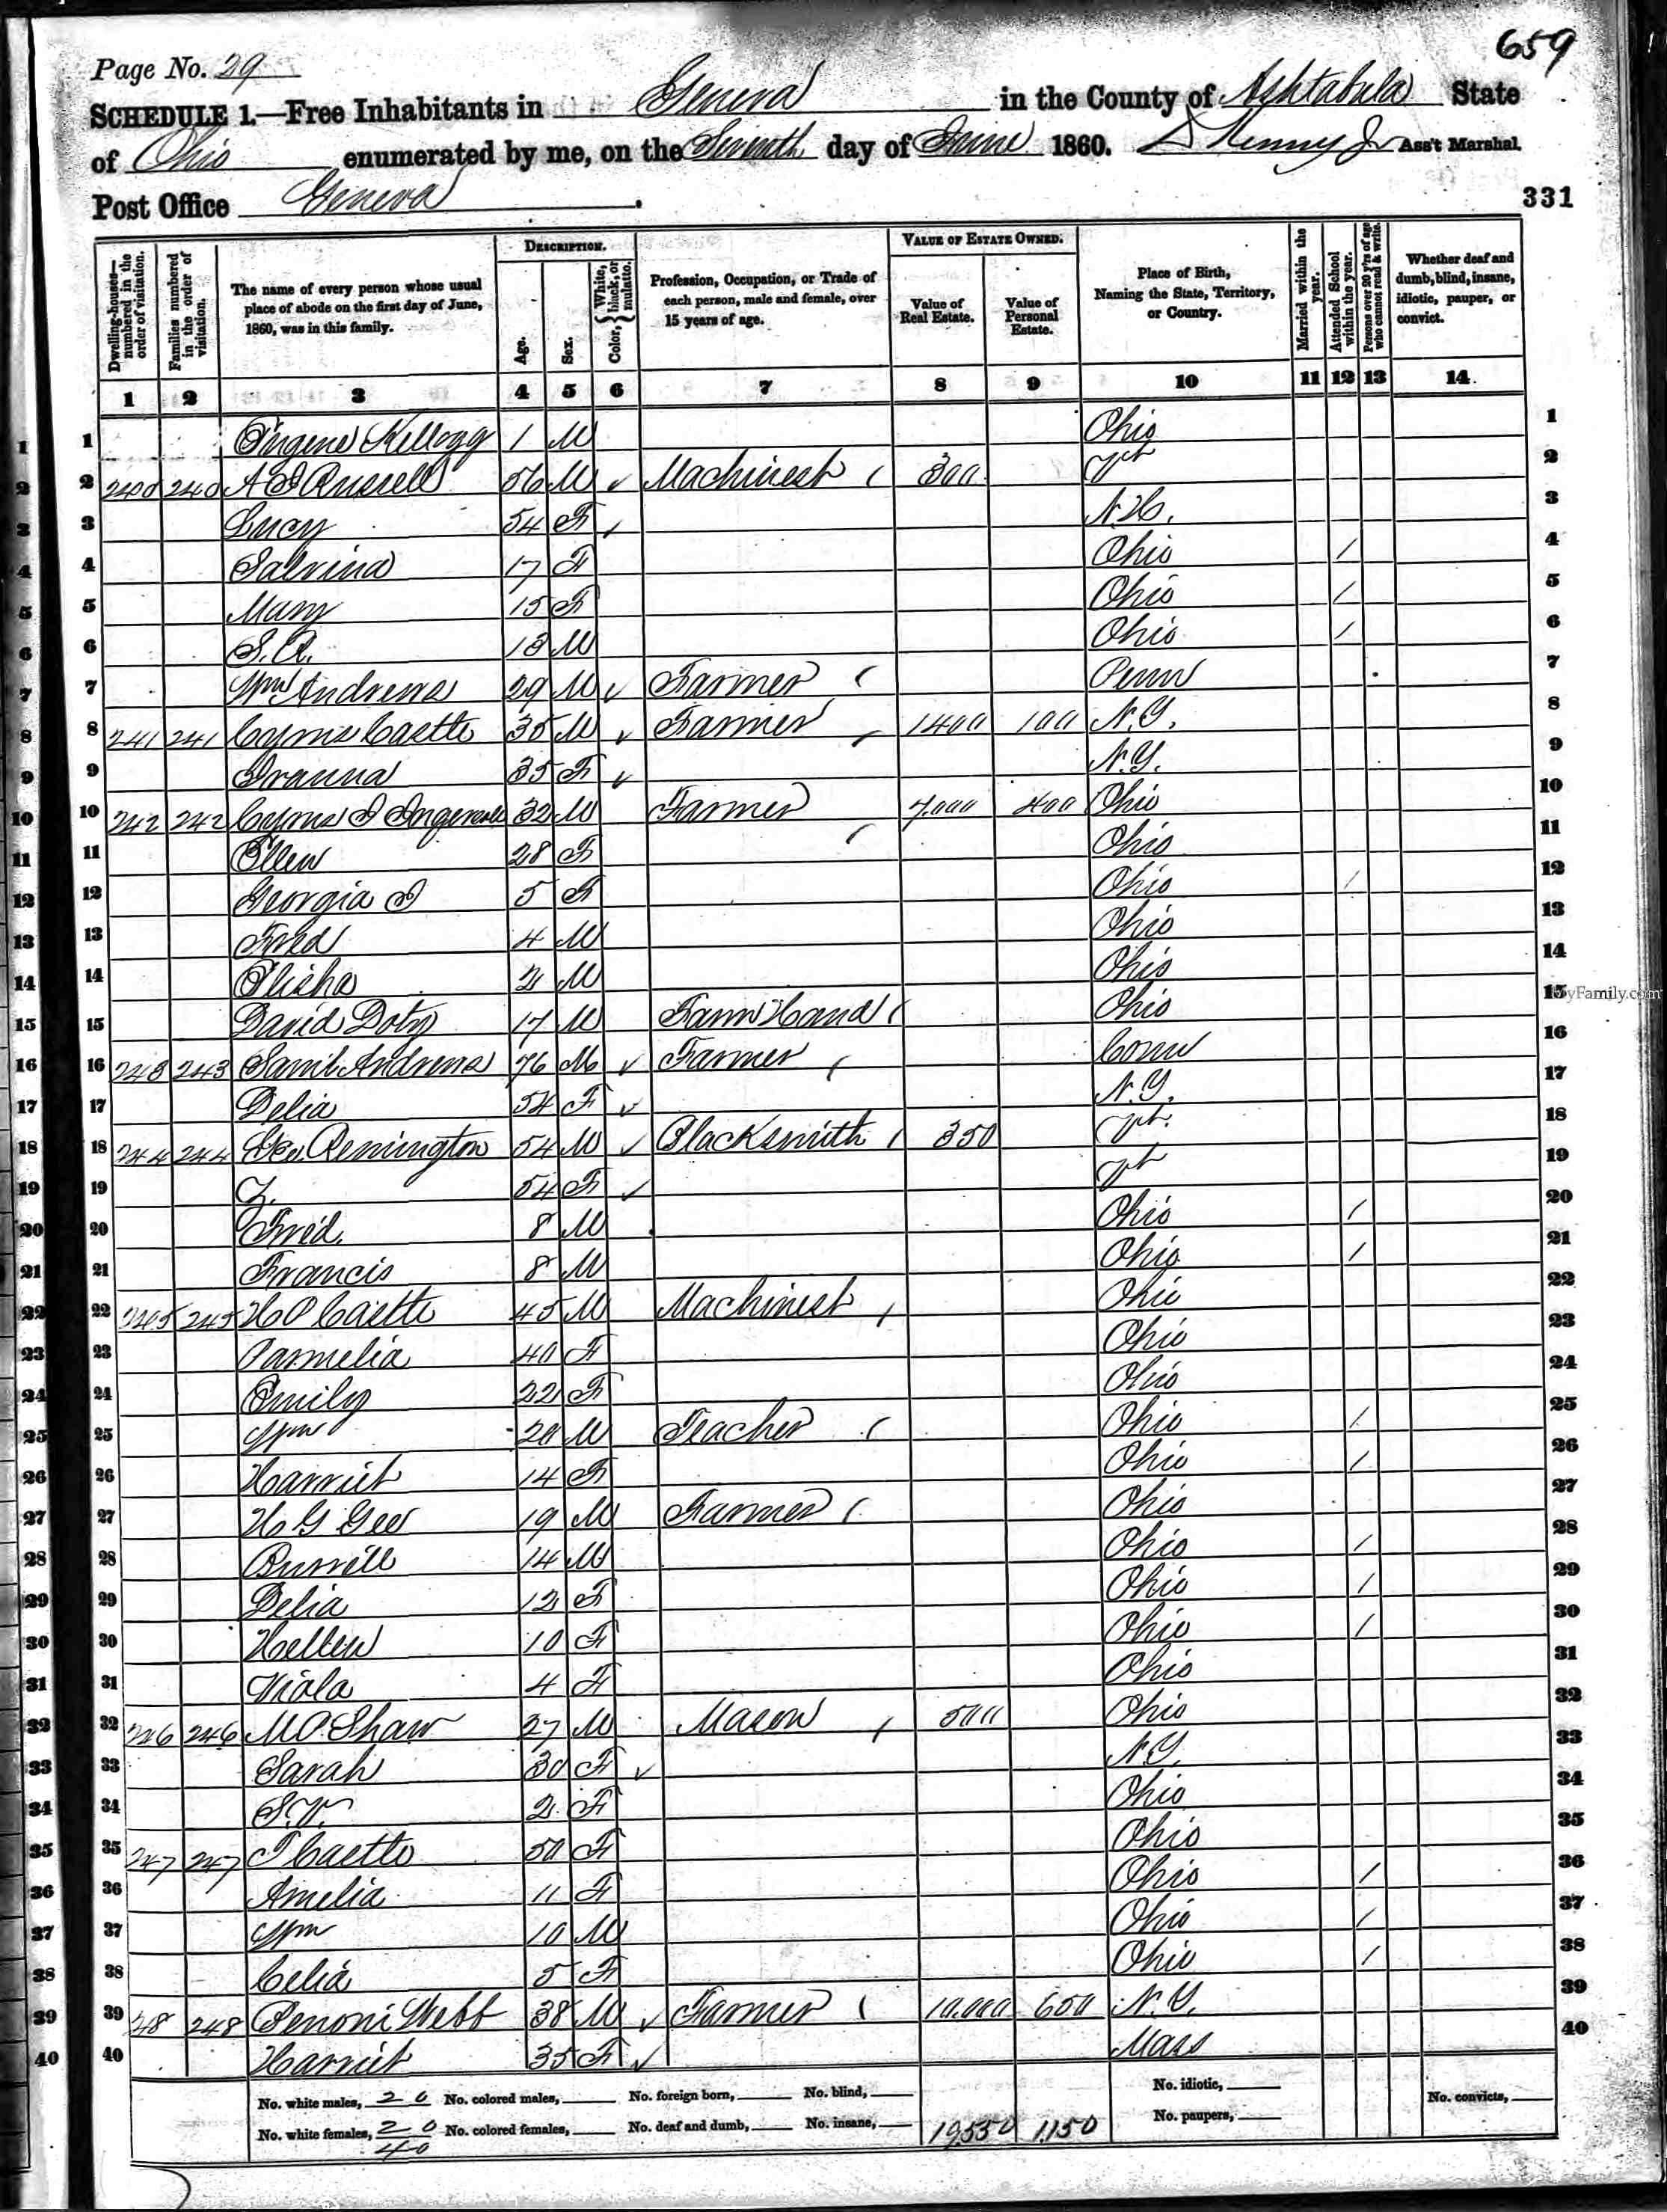 659
Page No. 29
SCHEDULE 1.—Free Inhabitants in Geneva in the County of Ashtabula State
of Ohio enumerated by me, on the Seventh day of June 1860. Kenny Jr Ass't Marshal.
Post Office Geneva.
331
Dwelling-houses—numbered in the order of visitation.
Families numbered in the order of visitation.
The name of every person whose usual place of abode on the first day of June, 1860, was in this family.
DESCRIPTION.
Age.
Sex.
Color, { White, black, or mulatto.
Profession, Occupation, or Trade of each person, male and female, over 15 years of age.
VALUE OF ESTATE OWNED.
Value of Real Estate.
Value of Personal Estate.
Place of Birth, Naming the State, Territory, or Country.
Married within the year.
Attended School within the year.
Persons over 20 y'rs of age who cannot read & write.
Whether deaf and dumb, blind, insane, idiotic, pauper, or convict.
1 2 3 4 5 6 7 8 9 10 11 12 13 14
1 Eugene Kellogg 1 M Ohio 1
2 240 240 A Russell 56 M ✓ Machinest 300 Vt 2
3 Lucy 54 F N.H. 3
4 Salvina 17 F Ohio / 4
5 Mary 15 F Ohio / 5
6 S. A. 13 M Ohio / 6
7 Wm Andrews 29 M ✓ Farmer Penn 7
8 241 241 Cyrus Castle 35 M ✓ Farmer 1400 100 N.Y. 8
9 35 F ✓ N.Y. 9
10 242 242 Cyrus I Ingersoll 32 M Farmer 7.000 400 Ohio 10
11 Ellen 28 F Ohio 11
12 Georgia I 5 F Ohio / 12
13 Fred 4 M Ohio 13
14 Elisha 2 M Ohio 14
15 David Doty 17 M Farm Hand Ohio 15
16 243 243 Saml Andrews 76 M ✓ Farmer Conn 16
17 Delia 54 F ✓ N.Y. 17
18 244 244 Geo. Remington 54 M ✓ Blacksmith 350 Vt. 18
19 Z. 54 F ✓ Vt 19
20 Fred. 8 M Ohio / 20
21 Francis 8 M Ohio / 21
22 245 245 H P Castle 45 M Machinest Ohio 22
23 Pamelia 40 F Ohio 23
24 Emily 22 F Ohio 24
25 Wm 20 M Teacher Ohio / 25
26 Harriet 14 F Ohio / 26
27 H G Gee 19 M Farmer Ohio 27
28 Burrill 14 M Ohio / 28
29 Delia 12 F Ohio / 29
30 Hellen 10 F Ohio / 30
31 Viola 4 F Ohio 31
32 246 246 M P. Shaw 27 M Mason 500 Ohio 32
33 Sarah 30 F ✓ N.Y. 33
34 S. V. 2 F Ohio 34
35 247 247 T Castle 50 F Ohio 35
36 Amelia 11 F Ohio / 36
37 Wm 10 M Ohio / 37
38 Celia 5 F Ohio / 38
39 248 248 Benoni Webb 38 M ✓ Farmer 10.000 600 N.Y. 39
40 Harriet 35 F ✓ Mass 40
No. white males, 20 No. colored males, No. foreign born, No. blind, No. idiotic, No. convicts,
No. white females, 20 No. colored females, No. deaf and dumb, No. insane, 19550 1150 No. paupers,
40
MyFamily.com